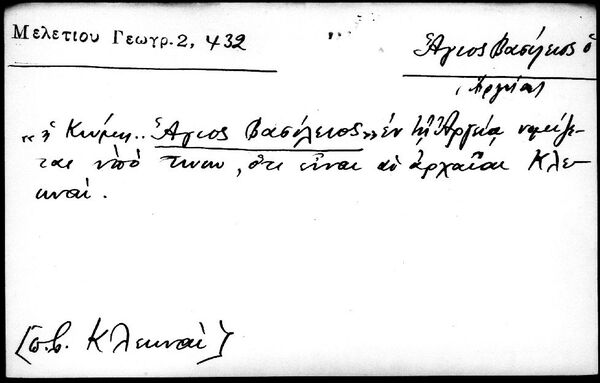 Μελετίου Γεωγρ. 2, 432
Ἅγιος Βασίλειος ὁ
(Ἀργεία)
«ἡ Κώμη.. Ἅγιος Βασίλειος» ἐν τῇ Ἀργείᾳ νομίζε-
ται ὑπό τινων, ὅτι εἶναι αἱ ἀρχαῖαι Κλε-
ωναί.
[σ.β. Κλεωναί]